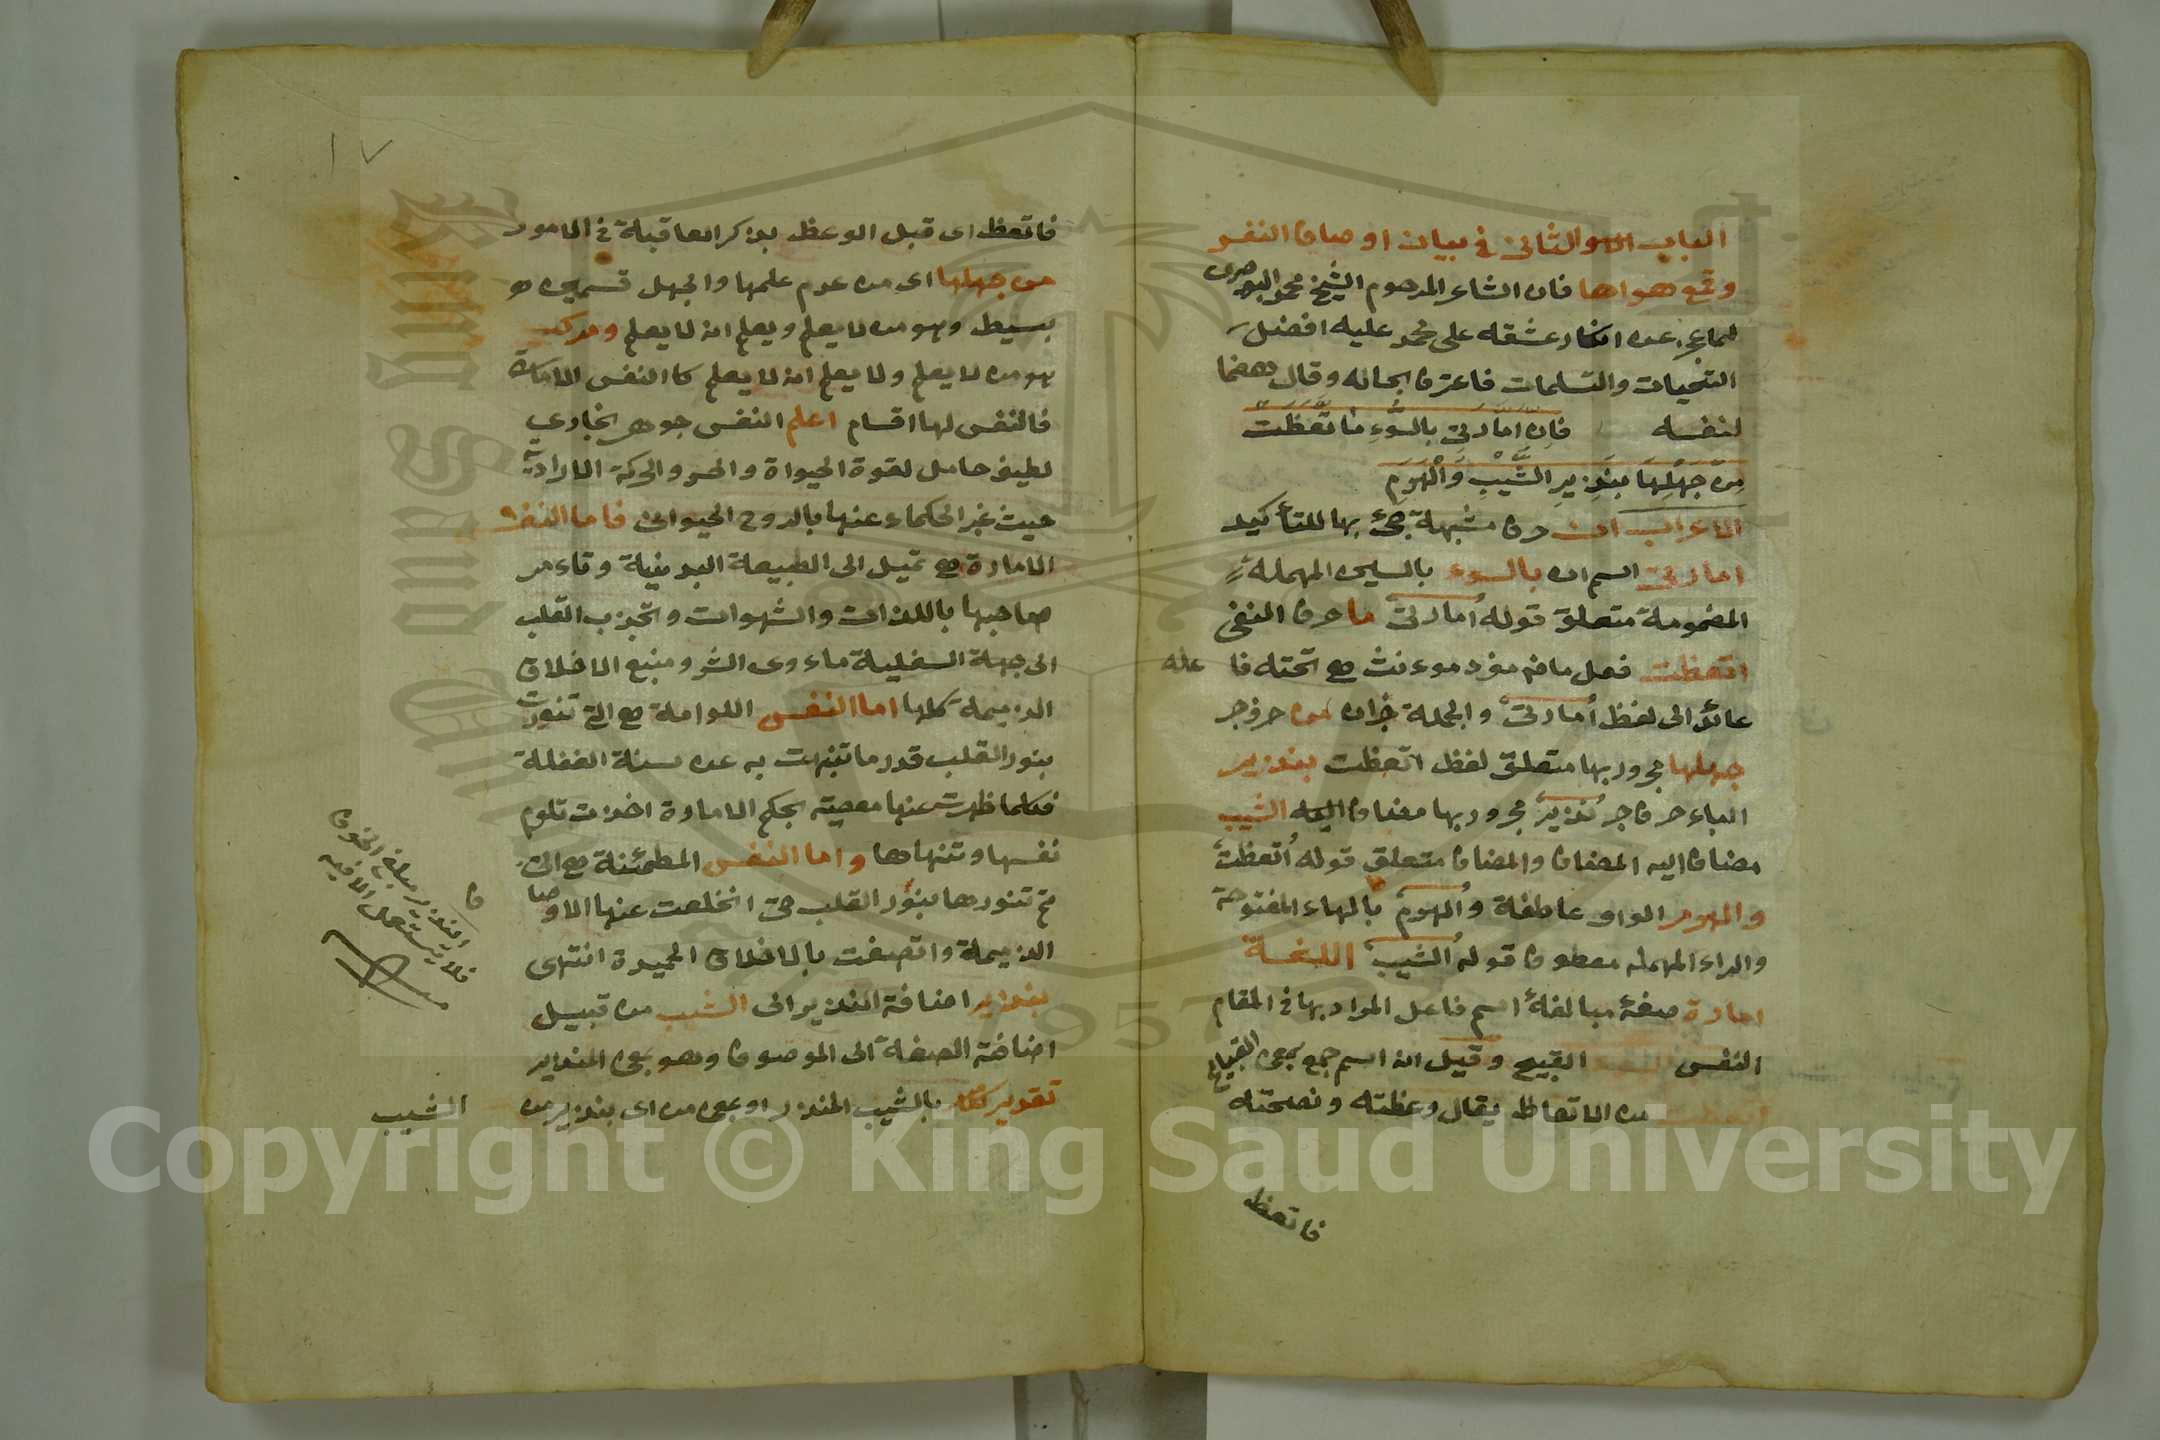 الباب الثانى فى بيان اوصاف النفس
وقمع هواها فان الشاعر المرحوم الشيخ محمد البوصرى
لما عجز عن انكار عشقه على محمد عليه افضل
التحيات والتسلمات فاعترف بحاله وقال هضما
لنفسه فَاِنَّ اَمَّارَتِى بِالسُّوءِ مَا اتَّعَظَتْ
مِنْ جَهْلِهَا بِنَذِيرِ الشَّيْبِ وَالْهَرَمِ
الاعراب ان حرف مشبهة جئ بها للتأكيد
امارتى اسم ان بالسوء بالسين المهملة
المضمومة متعلق قوله امارتى ما حرف النفى
اتعظت فعل ماض مفرد موءنث هى تحته فا عله
عائد الى لفظ امارتى والجملة خبران من حرف جر
جهلها مجرور بها متعلق لفظ اتعظت بنذير
الباء حرف جر نذير مجرور بها مضاف اليه الشيب
مضاف اليه المضاف والمضاف متعلق قوله اتعظت
والهرم الواو عاطفة والهرم بالهاء المفتوحة
والراء المهمله معطوف قوله الشيب اللغة
امارة صفة مبالغة اسم فاعل المراد بها فى المقام
النفس القبيح وقيل ان اسم جمع بمعنى القبيها
اتعظت من الاتعاظ يقال وعظته ونصحته
فاتعظ
١٧
فاتعظ اى قبل الوعظ بذكر العاقبة فى الامور
من جهلها اى من عدم علمها والجهل قسمين هو
بسيط وهو من لا يعلم ويعلم انه لا يعلم ومركب
هو من لا يعلم ولا يعلم انه لا يعلم كا النفس الامارة
فالنفس لها اقسام اعلم النفس جوهر بخارى
لطيف حامل لقوة الحيواة والحس والحركة الارادية
حيث عبر الحكماء عنها بالروح الحيوانى فاما النفس
الامارة هى تميل الى الطبيعة البدنية وتاءمر
صاحبها باللذات والشهوات وتجذب القلب
الى جهة السفلية ماءوى الشر ومنبع الاخلاق
الذميمة كلها اما النفس اللوامة هى التى تنورت
بنور القلب قدر ما تنبهت به عن سنة الغفلة
فكلما ظهرت عنها معصية بحكم الامارة اخذت تلوم
نفسها وتنهاها واما النفس المطمئنة هى التى
تم تنورها بنور القلب حتى انخلعت عنها الاوصاف
الذميمة واتصفت بالاخلاق الحميدة انتهى
بنذير اضافة النذير الى الشيب من قبيل
اضافة الصفة الى الموصوف وهو بمعنى المنذير
تقدير بالشيب المنذر او بمعنى من اى بنذير من
الشيب